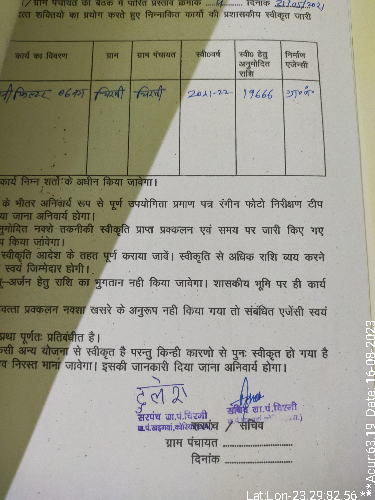 / ग्राम पंचायत की बैठक में पारित प्रस्ताव क्रमांक 4 दिनांक 21/05/2021
त्त शक्तियो का प्रयोग करते हुए निम्नांकित कार्यो की प्रशासकीय स्वीकृत जारी
कार्य का विवरण ग्राम ग्राम पंचायत स्वी0वर्ष स्वी0 हेतु अनुमोदित राशि निर्माण एजेन्सी
चिरमी चिरमी 2021-22 19666 ग्रा.पं.
कार्य निम्न शर्तो के अधीन किया जावेगा।
के भीतर अनिवार्य रूप से पूर्ण उपयोगिता प्रमाण पत्र रंगीन फोटो निरीक्षण टीप
या जाना अनिवार्य होगा।
नुमोदित नक्शे तकनीकी स्वीकृति प्राप्त प्रक्कलन एवं समय पर जारी किए गए
प किया जावेगा।
स्वीकृति आदेश के तहत पूर्ण कराया जावें। स्वीकृति से अधिक राशि व्यय करने
स्वयं जिम्मेदार होगी।
-अर्जन हेतु राशि का भुगतान नही किया जावेगा। शासकीय भूमि पर ही कार्य
वत्ता प्रक्कलन नक्शा खसरे के अनुरूप नही किया गया तो संबंधित एजेंसी स्वयं
प्रथा पूर्णतः प्रतिबंधीत है।
कसी अन्य योजना से स्वीकृत है परन्तु किन्ही कारणो से पुनः स्वीकृत हो गया है
व निरस्त माना जावेगा। इसकी जानकारी दिया जाना अनिवार्य होगा।
दुलेश
सरपंच ग्रा.पं.चिरमी सचिव ग्रा.पं.चिरमी
सरपंच / सचिव
ग्राम पंचायत ..................
दिनांक ..................
Lat Lon-23.29:82.56 **
**Acur:63.19 Date: 16-08-2023